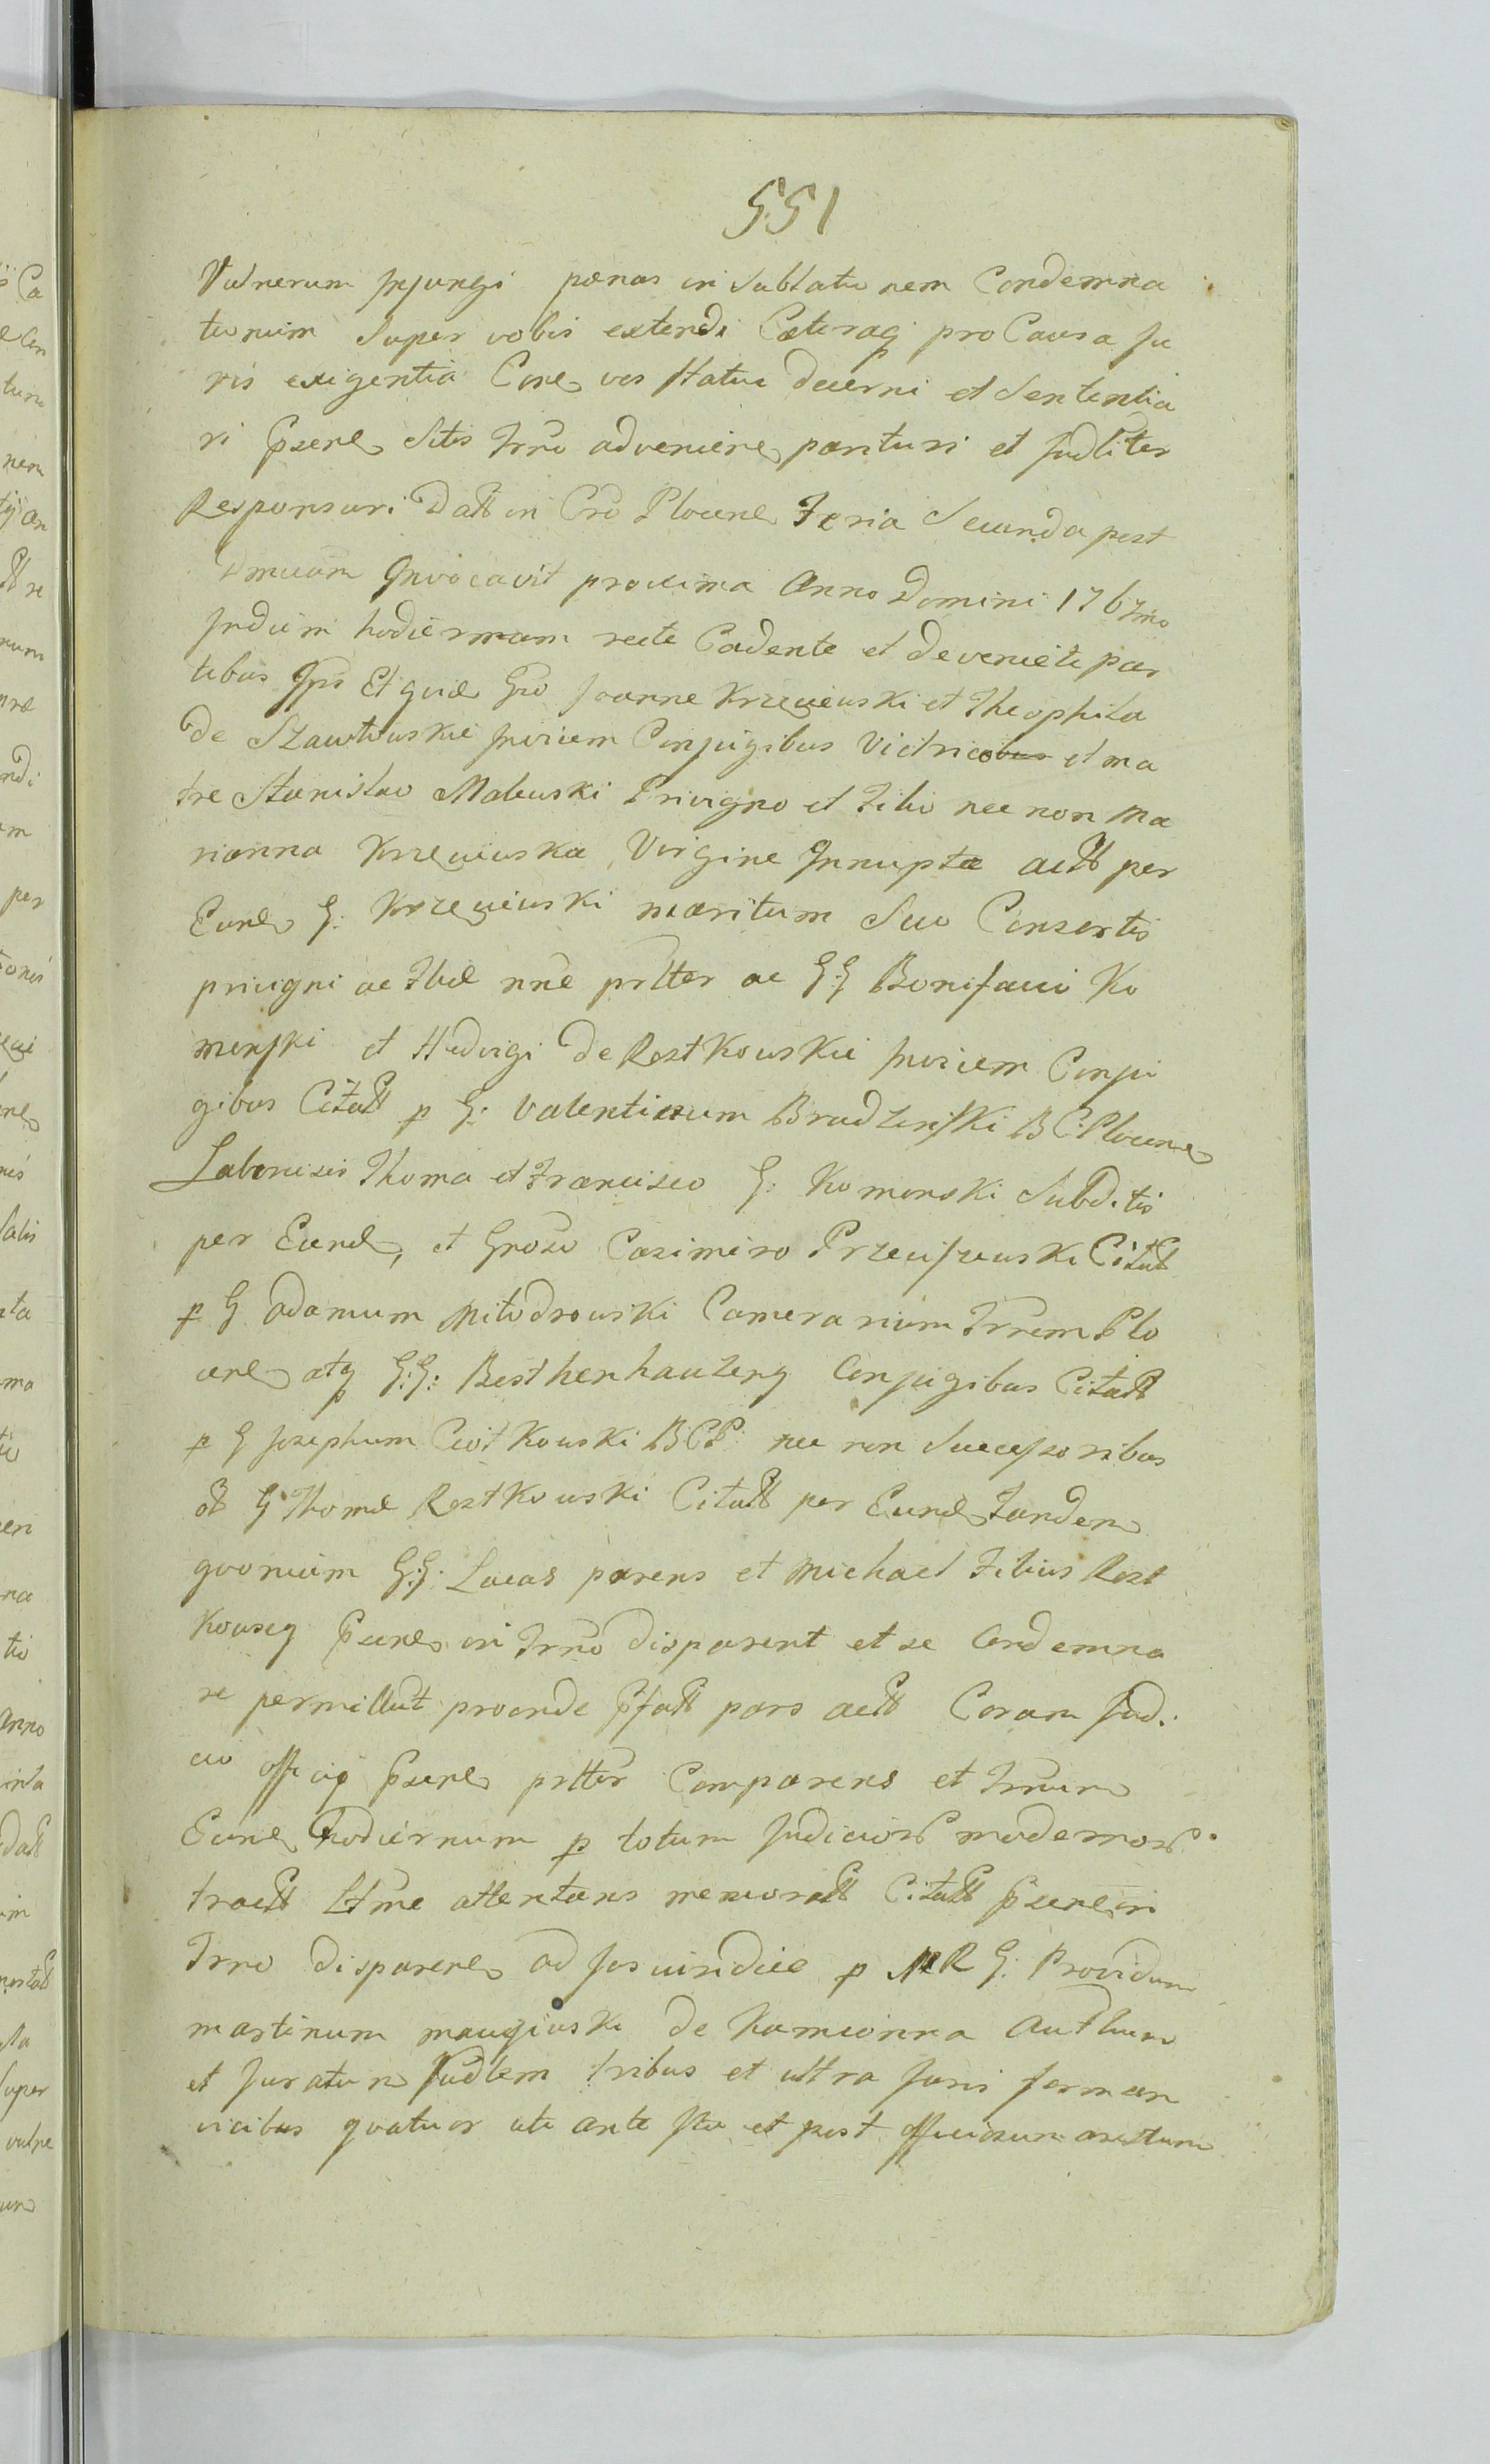 551
Vulnerum Injungi pænas in sublatio nem Condemna
tionum super vobis extendi Cæteraq pro Causa Ju
ris exigentia Cone vos statui decerni et Sententia
ri Psens Sitis Trno adveniens parituri et Judliter
Responsuri Datt in Cro Plocens Feria Secunda post
Dmcam Invocavit proxima Anno Domini 1767mo
Indiem hodiernam recte Cadente et deveniete par
tibus Ipis Et quid Gso Joanne Krzeciewski et Theophila
de Szawłwuskie Inviem Conjugibus Victricobus et ma
tre Stanislao Malewski Privigno et Filio nec non Ma
rianna Krzeciewska Virgine Innupta actt per
Eund G: Krzeciewski maritum Suo Consortis
privigni ac Filiæ nne prltter ac G:G Bonifacii Ko
menski et Hedvigi de Rostkowskie Inviem Conju
gibus Citatt p G: Valentinum Brudzinski B C: Plocens
Laboriosis Thoma et Francisco G: Komorski Subditis
per Eund, et Groso Casimiro Przeciszewski Citatt
p G Adamum Mitodrowski Camerarium Trrem Plo
cens atq G:G: Besthenhauzeny Conjugibus Citatt
p G Josephum Ciotkowski B C P: nec non Successoribus
ol G Thomæ Rostkowski Citatt per Eund Tandem
quonium G:G: Lucas parens et Michael Filius Rost
kowscy Psens in Trno disparent et se Condemna
re permittut proinde Psfatt pars actt Coram Judi
cio officiq Psens prltter Comparens et Trnum
Eund Hodiernum p totum Judicior modernor
tractt Ltme attentans memoratt Citatt Psens in
Trno disparens ad Jus vindice p MR G: Providum
martinum maugiuski de Kamionna Authum
et Juratum Judlem tribus et ultra Juris forman
vicibus quatuor uti ante sta et post officiosum arestum